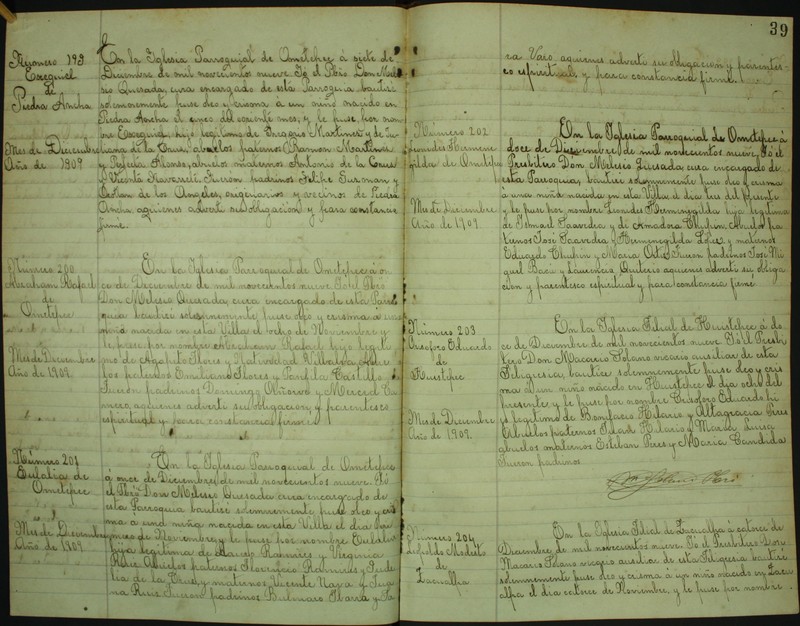 Número 199
Esequiel
de
Piedra Ancha
Mes de Diciembre
Año de 1909
En la Iglesia Parroquial de Ometepec á siete de
Diciembre de mil novecientos nueve Yo el Pbro Don Mele
sio Quesada, cura encargado de esta Parroquia bautizé
solemnemente puse oleo y crisma á un niño nacido en
Piedra Ancha el cinco del presente mes, y le puse por nom
bre Esequiel, hijo legítimo de Martinez y de Ju
liana de la Cruz, abuelos paternos Ramon Martinez
y Alonso, abuelos maternos Antonio de la Cruz
y Vicenta Fueron padrinos Felipe Guzman y
de los Angeles, originarios y vecinos de Piedra
Ancha aquienes advertí su obligacion y para constancia
firmé.
Número 200
Abraham Rafael
de
Ometepec
Mes de Diciembre
Año de 1909.
En la Iglesia Parroquial de Ometepec á on
ce de Diciembre de mil novecientos nueve Yo el Pbro
Don Melesio Quesada, cura encargado de esta Parro
quia bautizé solemnemente puse oleo y crisma á un
niño nacido en esta Villa el ocho de Noviembre y
le puse por nombre Abraham Rafael hijo legíti
mo de Agapito Flores y Natividad Villalva, abue
los paternos Emiliano Flores y Panfila Castillo
Fueron padrinos Domingo y Merced
aquienes advertí su obligacion y parentesco
espiritual y para constancia firmé.
Número 201
Eulalia de
Ometepec
Mes de Diciembre
Año de 1909
En la Iglesia Parroquial de Ometepec
á once de Diciembre de mil novecientos nueve Yo
el Pbro Don Melesio Quesada cura encargado de
esta Parroquia bautizé solemnemente puse oleo y cris
ma á una niña nacida en esta Villa el dia
mero de Noviembre, y le puse por nombre Eulalia
hija legítima de Ramirez y Virginia
Ruiz Abuelos paternos Florencio Ramirez y
de la Cruz, y maternos Vicente y
na Ruiz Fueron padrinos Bulmaro Ibarra y
39
aquienes advertí su obligacion y parentes
co espiritual y para constancia firmé.
Número 202
Leonides Hermene
gilda de Ometepec
Mes de Diciembre
Año de 1909.
En la Iglesia Parroquial de Ometepec á
doce de Diciembre de mil novecientos nueve, Yo el
Presbítero Don Melesio Quesada, cura encargado de
esta Parroquia, bautizé solemnemente puse oleo y crisma
á una niña nacida en esta Villa el dia tres del presente
y le puse por nombre Leonides Hermenegilda hija legítima
de Ismael Saavedra y de Amadora Abuelos pa
ternos José Saavedra y Hermenegilda Lopez y maternos
Eduardo y Maria Fueron padrinos José Mi
guel Baca y aquienes advertí su obliga
cion y parentesco espiritual y para constancia firmé
Número 203
Crisoforo Eduardo
de
Huistepec
Mes de Diciembre
Año de 1909.
En la Iglesia Filial de Huistepec á do
ce de Diciembre de mil novecientos nueve Yo el Presbí
tero Don Macario Solano vicario ausiliar de esta
Feligresia, bautizé solemnemente puse oleo y cris
ma á un niño nacido en Huistepec el dia ocho del
presente y le puse por nombre Crisoforo Eduardo hi
jo legítimo de Bonifacio Hilario y Altagracia Pires
Abuelos paternos Hilario y Maria Luisa
abuelos maternos Esteban Pires y Maria Candida
Fueron padrinos
Solano Pbro
Número 204
Modesto
de
Zacualpa
En la Iglesia Filial de Zacualpa á catorce de
Diciembre de mil novecientos nueve Yo el Presbítero Don
Macario Solano vicario ausiliar de esta Feligresia bautizé
solemnemente puse oleo y crisma á un niño nacido en Zacu
alpa el dia catorce de Noviembre, y le puse por nombre